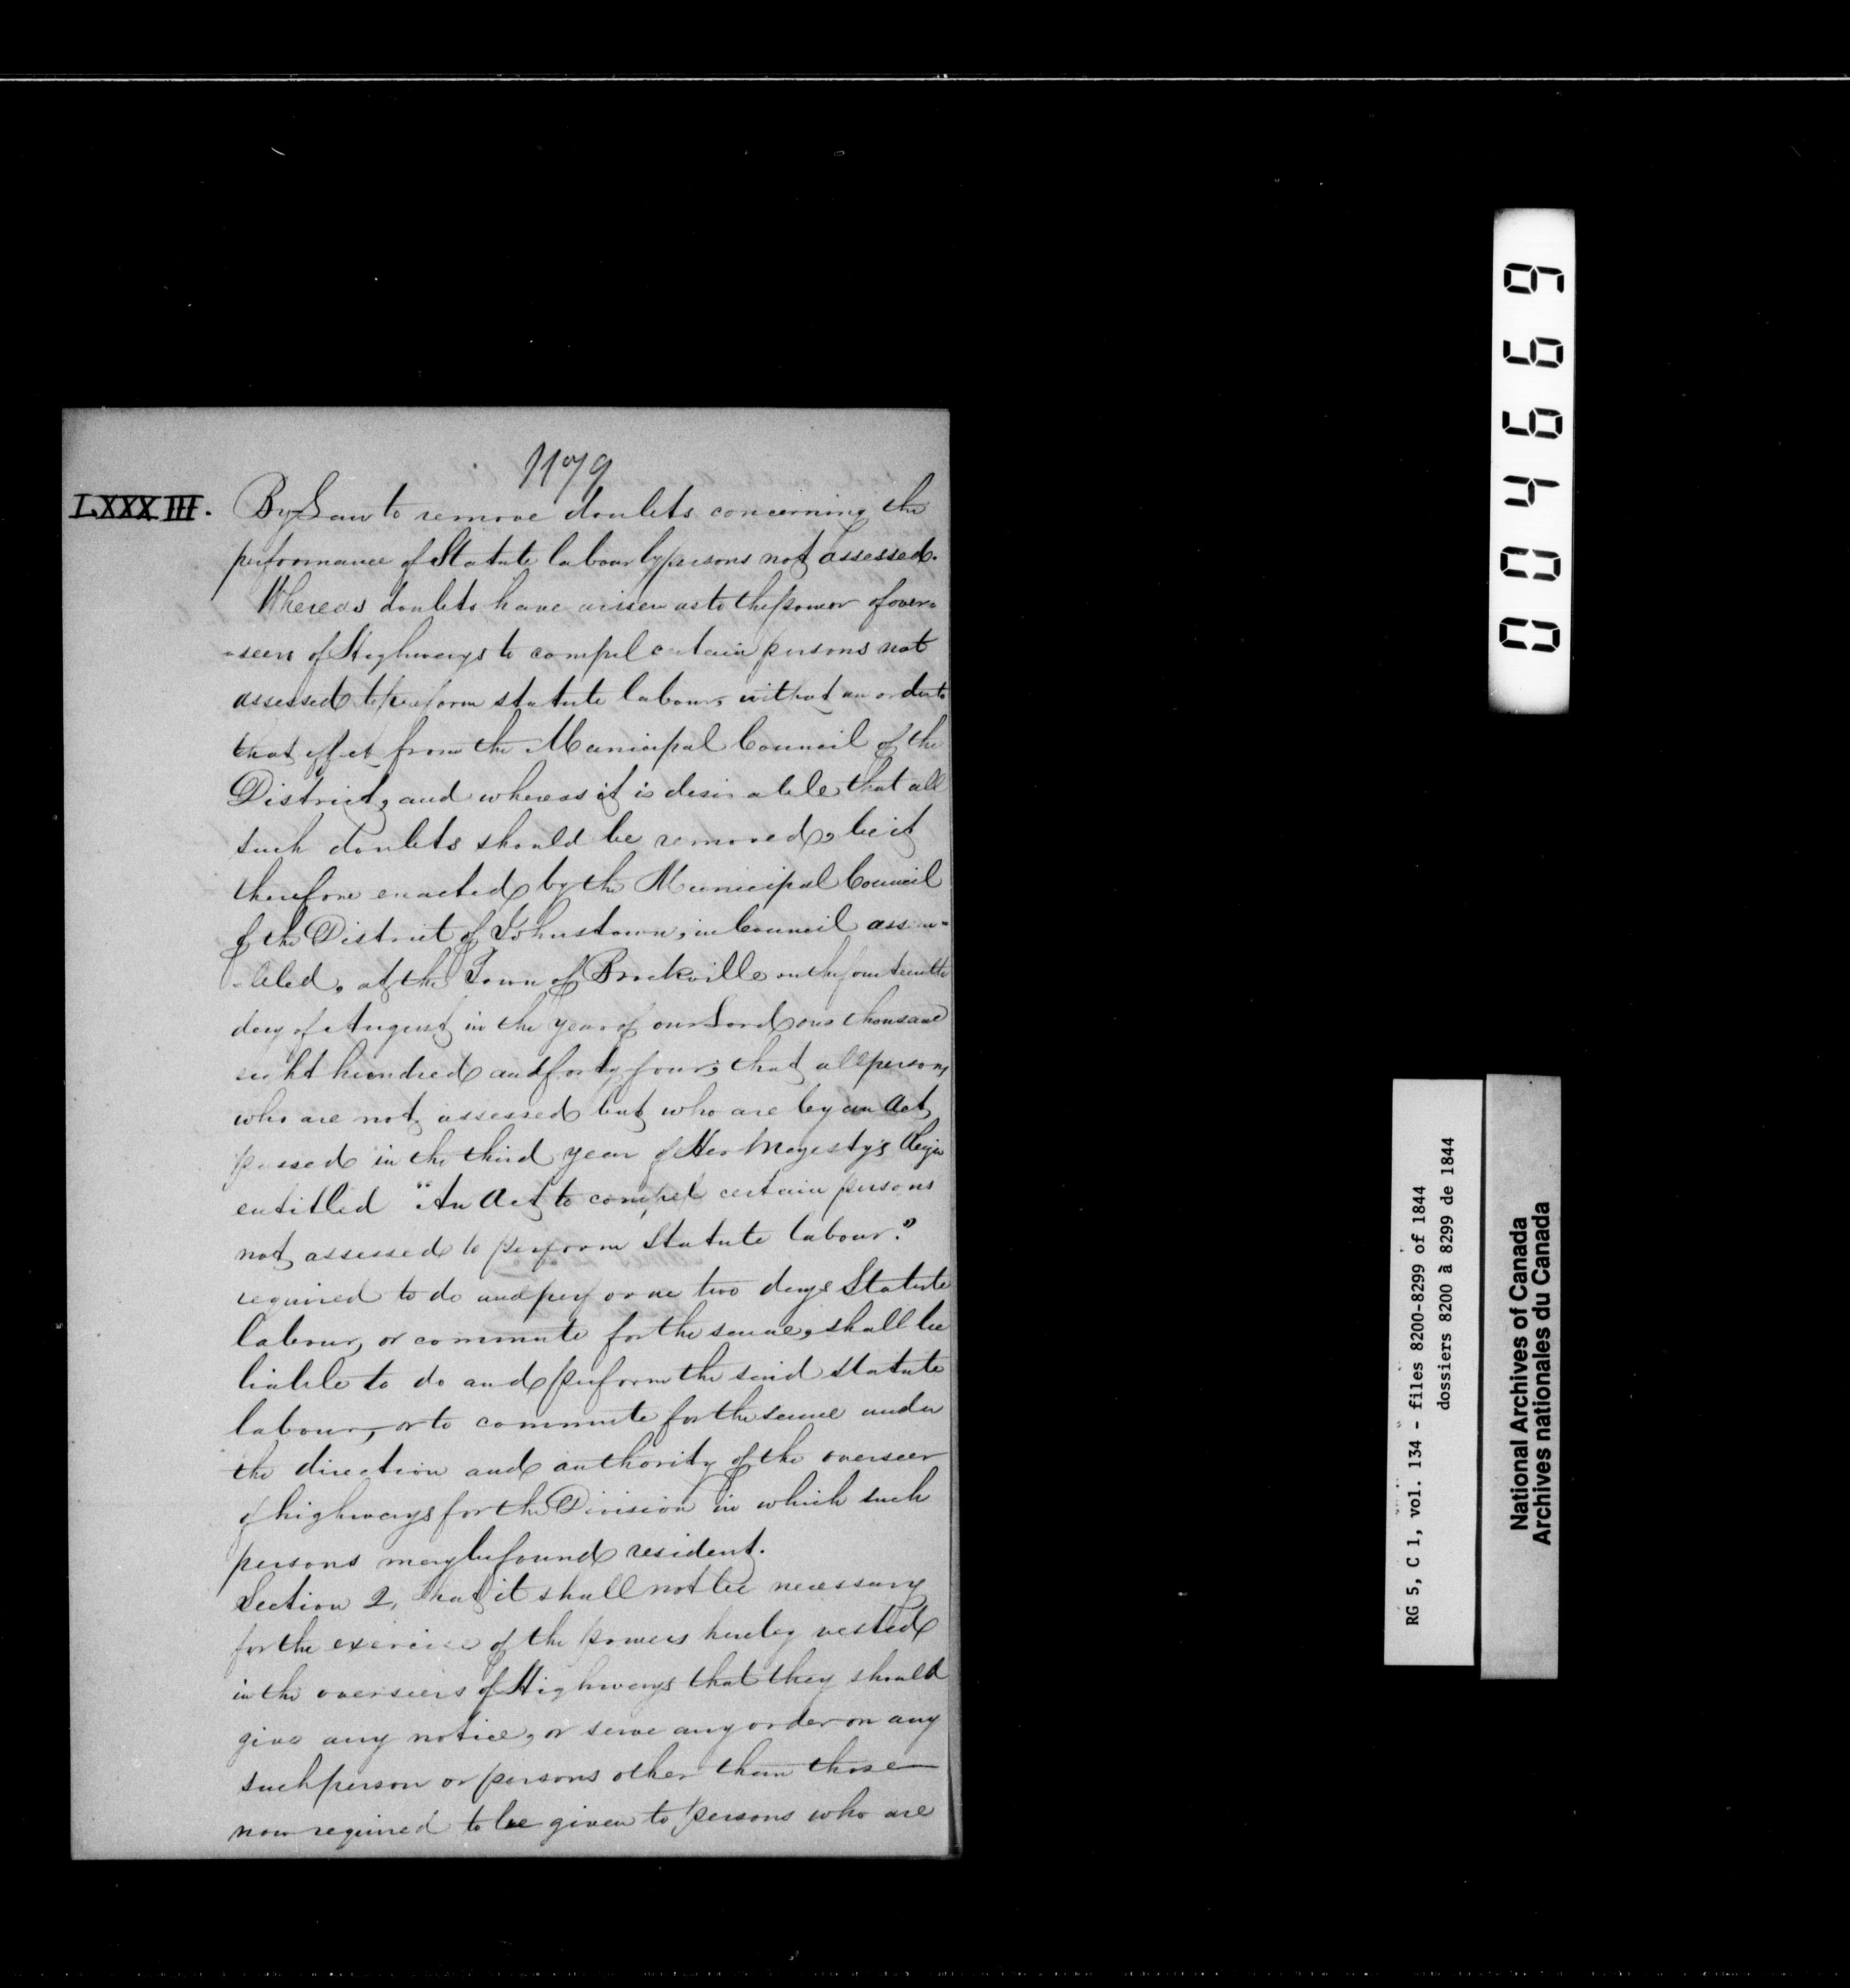 1179
LXXXIII. By Law to remove doubts concerning the
performance of Statute labour by persons not assessed.
Whereas doubts have arisen as to the power of over=
=seers of Highways to compel certain persons not
assessed to perform statute labour, without an order to
that effect from the Municipal Council of the
District, and whereas it is desirable that all
such doubts should be removed, be it
therefore enacted by the Municipal Council
of the District of Johnstown, in Council assem=
=bled, at the Town of Brockville on the fourteenth
day of August in the year of our Lord one thousand
eight hundred and forty four; that all persons
who are not assessed but who are by an Act
passed in the third year of Her Majesty's Reign
entitled "An Act to compel certain persons
not assessed to perform Statute labour."
required to do and perform two days Statute
labour, or commute for the same, shall be
liable to do and perform the said statute
labour, or to commute for the same under
the direction and authority of the overseer
of highways for the Division in which such
persons may be found resident.
Section 2, that it shall not be necessary
for the exercise of the powers hereby vested
in the overseers of Highways that they should
give any notice, or serve any order on any
such person or persons other than those
now required to be given to persons who are
004669
RG 5, C 1, vol. 134 - files 8200-8299 of 1844
dossiers 8200 à 8299 de 1844
National Archives of Canada
Archives nationales du Canada